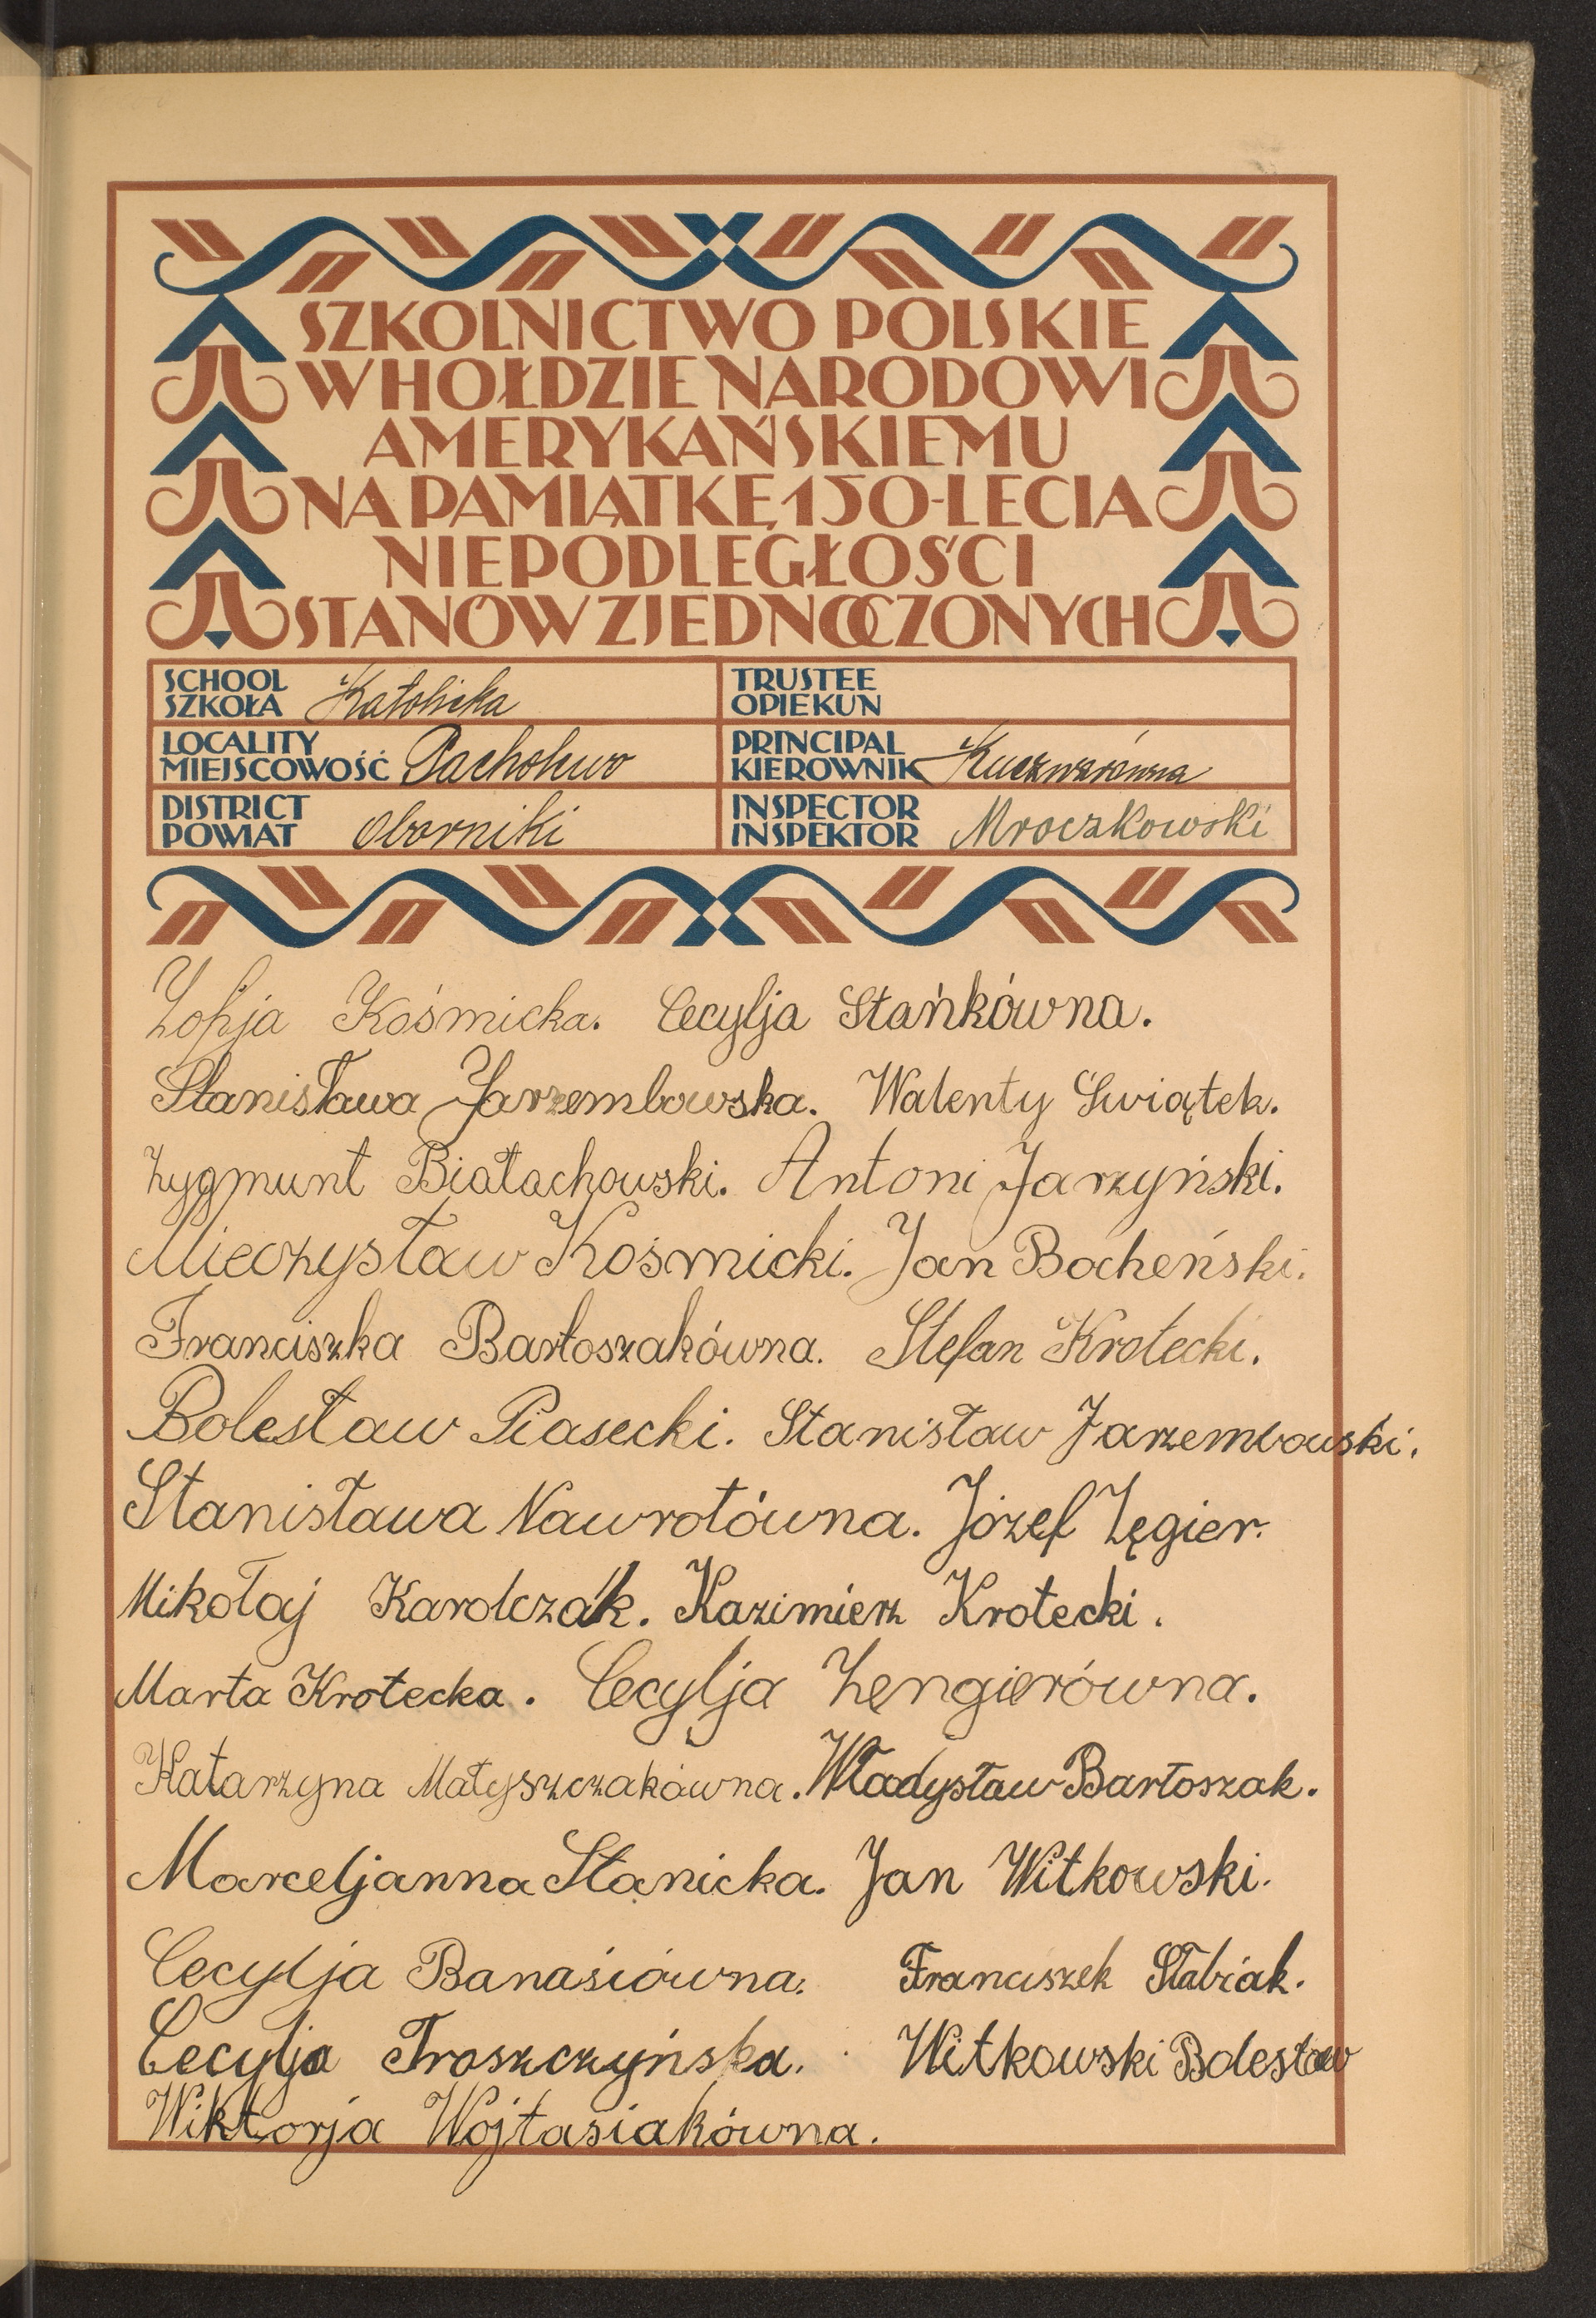 SZKOLNICTWO POLSKIE
W HOŁDZIE NARODOWI
AMERYKAŃSKIEMU
NA PAMIĄTKĘ 150-LECIA
NIEPODLEGŁOŚCI
STANÓW ZJEDNOCZONYCH
SCHOOL
SZKOŁA Katolicka
TRUSTEE
OPIEKUN
LOCALITY
MIEJSCOWOŚĆ Pacholewo
PRINCIPAL
KIEROWNIK
DISTRICT
POWIAT Oborniki
INSPECTOR
INSPEKTOR Mroczkowski
Zofja Kośmicka. Cecylja Stańkówna.
Stanisława Jarzembowska. Walenty Swiątek.
Zygmunt Białachowski. Antoni Jarzyński.
Mieczysław Kośmicki. Jan Bocheński.
Franciszka Bartoszakówna. Stefan Krotecki.
Bolesław Piasecki. Stanisław Jarzembowski.
Stanisława Nawrotówna. Józef Zęgier.
Mikołaj Karolczak. Kazimierz Krotecki.
Marta Krotecka. Cecylja Zengierówna.
Katarzyna Matyszczakówna. Władysław Bartoszak.
Marceljanna Stanicka. Jan Witkowski.
Cecylja Banasiówna. Franciszek Słabiak.
Cecylja Troszczyńska. Witkowski Bolesław
Wiktorja Wojtasiakówna.